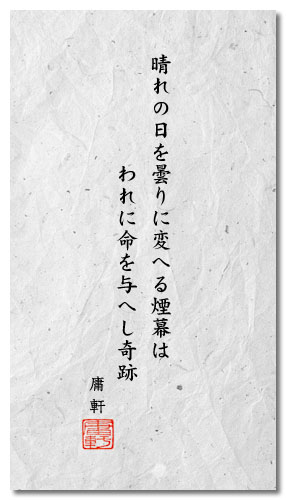 晴れの日を曇りに変へる煙幕は
われに命を与へし奇跡
庸軒